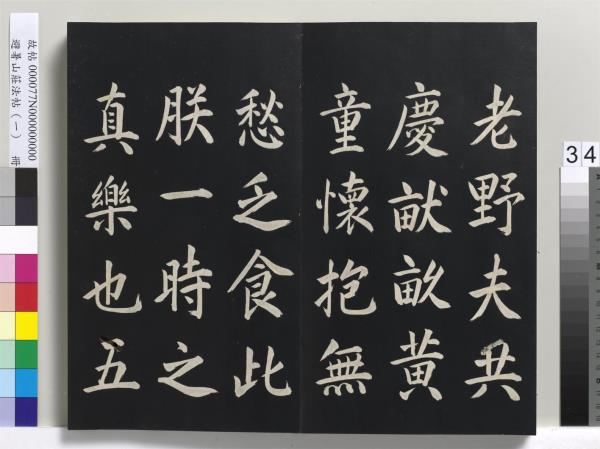 老野夫共
慶畎畝黄
童懷抱無
愁乏食此
朕一時之
真樂也五
故帖 000077N000000000
避暑山莊法帖（一） 冊
34